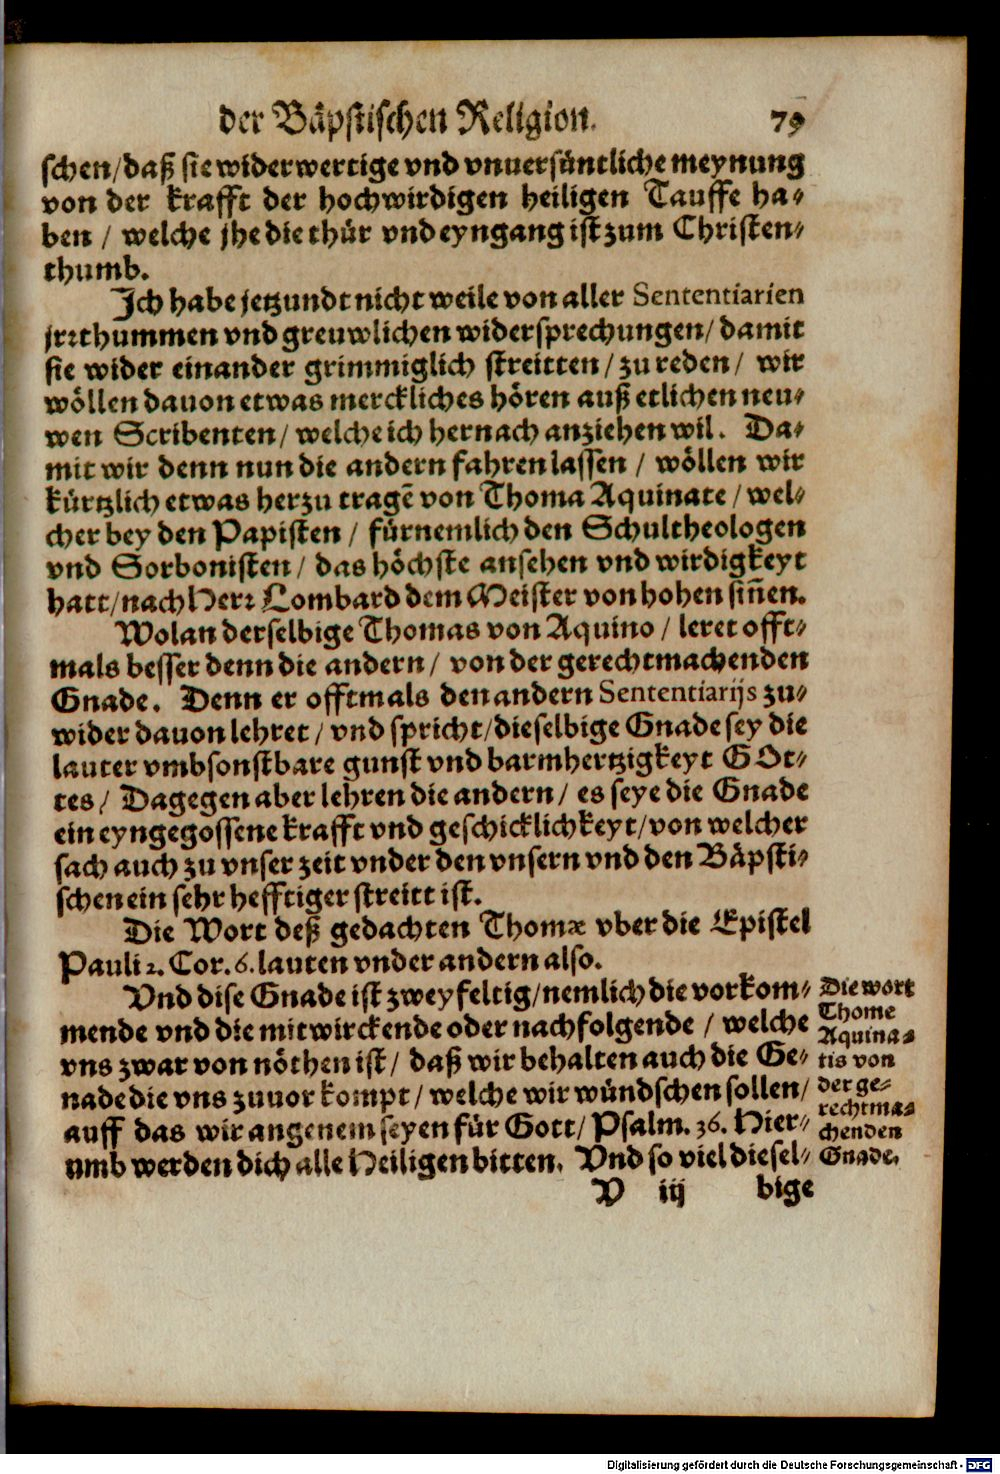 der Bäpstischen Religion. 79
schen/daß sie widerwertige vnd vnuersüntliche meynung
von der krafft der hochwirdigen heiligen Tauffe ha-
ben / welche jhe die thür vnd eyngang ist zum Christen-
thumb.
Ich habe jetzundt nicht weile von aller Sententiarien
jrꝛthummen vnd greuwlichen widersprechungen/ damit
sie wider einander grimmiglich streitten / zu reden / wir
wöllen dauon etwas merckliches hören auß etlichen neu-
wen Scribenten/ welche ich hernach anziehen wil. Da-
mit wir denn nun die andern fahren lassen / wöllen wir
kürtzlich etwas herzu tragē von Thoma Aquinate / wel-
cher bey den Papisten / fürnemlich den Schultheologen
vnd Sorbonisten/ das höchste ansehen vnd wirdigkeyt
hatt/nach Herꝛ Lombard dem Meister von hohen siñen.
Wolan derselbige Thomas von Aquino / leret offt-
mals besser denn die andern/ von der gerechtmachenden
Gnade. Denn er offtmals den andern Sententiarijs zu-
wider dauon lehret / vnd spricht/dieselbige Gnade sey die
lauter vmbsonstbare gunst vnd barmhertzigkeyt GOt-
tes/ Dagegen aber lehren die andern/ es seye die Gnade
ein eyngegossene krafft vnd geschicklichkeyt/von welcher
sach auch zu vnser zeit vnder den vnsern vnd den Bäpsti-
schen ein sehr hefftiger streitt ist.
Die Wort deß gedachten Thomæ vber die Epistel
Pauli 2. Cor. 6. lauten vnder andern also.
Vnd dise Gnade ist zweyfeltig/nemlich die vorkom-
mende vnd die mitwirckende oder nachfolgende / welche
vns zwar von nöthen ist/ daß wir behalten auch die Ge-
nade die vns zuuor kompt/ welche wir wündschen sollen/
auff das wir angenem seyen für Gott/ Psalm. 36. Hier-
umb werden dich alle Heiligen bitten. Vnd so viel diesel-
V iij bige
Die wort
Thome
Aquina-
tis von
der ge-
rechtma-
chenden
Gnade.
Digitalisierung gefördert durch die Deutsche Forschungsgemeinschaft - DFG